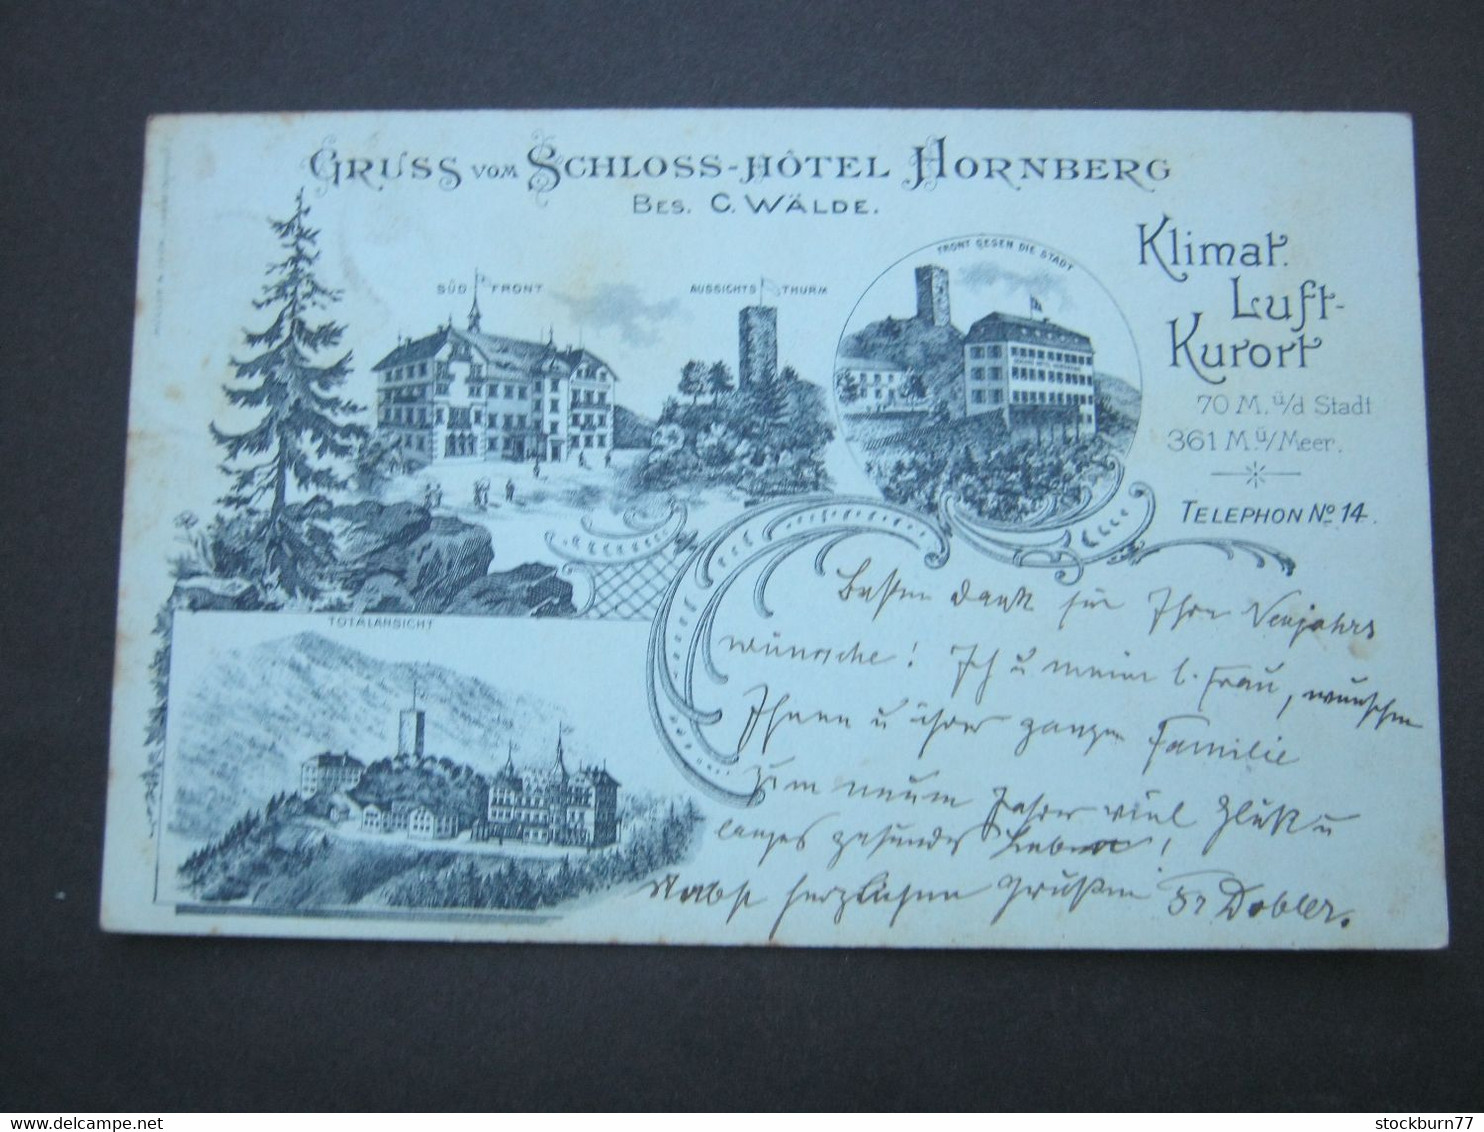 GRUSS VOM SCHLOSS-HÔTEL HORNBERG
BES. C. WÄLDE.
Klimat.
Luft-
Kurort
70 M. ü/d Stadt
361 M. ü/Meer.
TELEPHON No 14.
SÜD FRONT
AUSSICHTS THURM
FRONT GEGEN DIE STADT
TOTALANSICHT
Besten Dank für Ihre Neujahrs
wünsche! Ich u meine l. Frau, wünschen
Ihnen u ihrer ganzen Familie
zum neuen Jahre viel Glück u
langes gesundes Leben!
Nebst herzlichen Grüßen Fr Dobler.
stockburn77